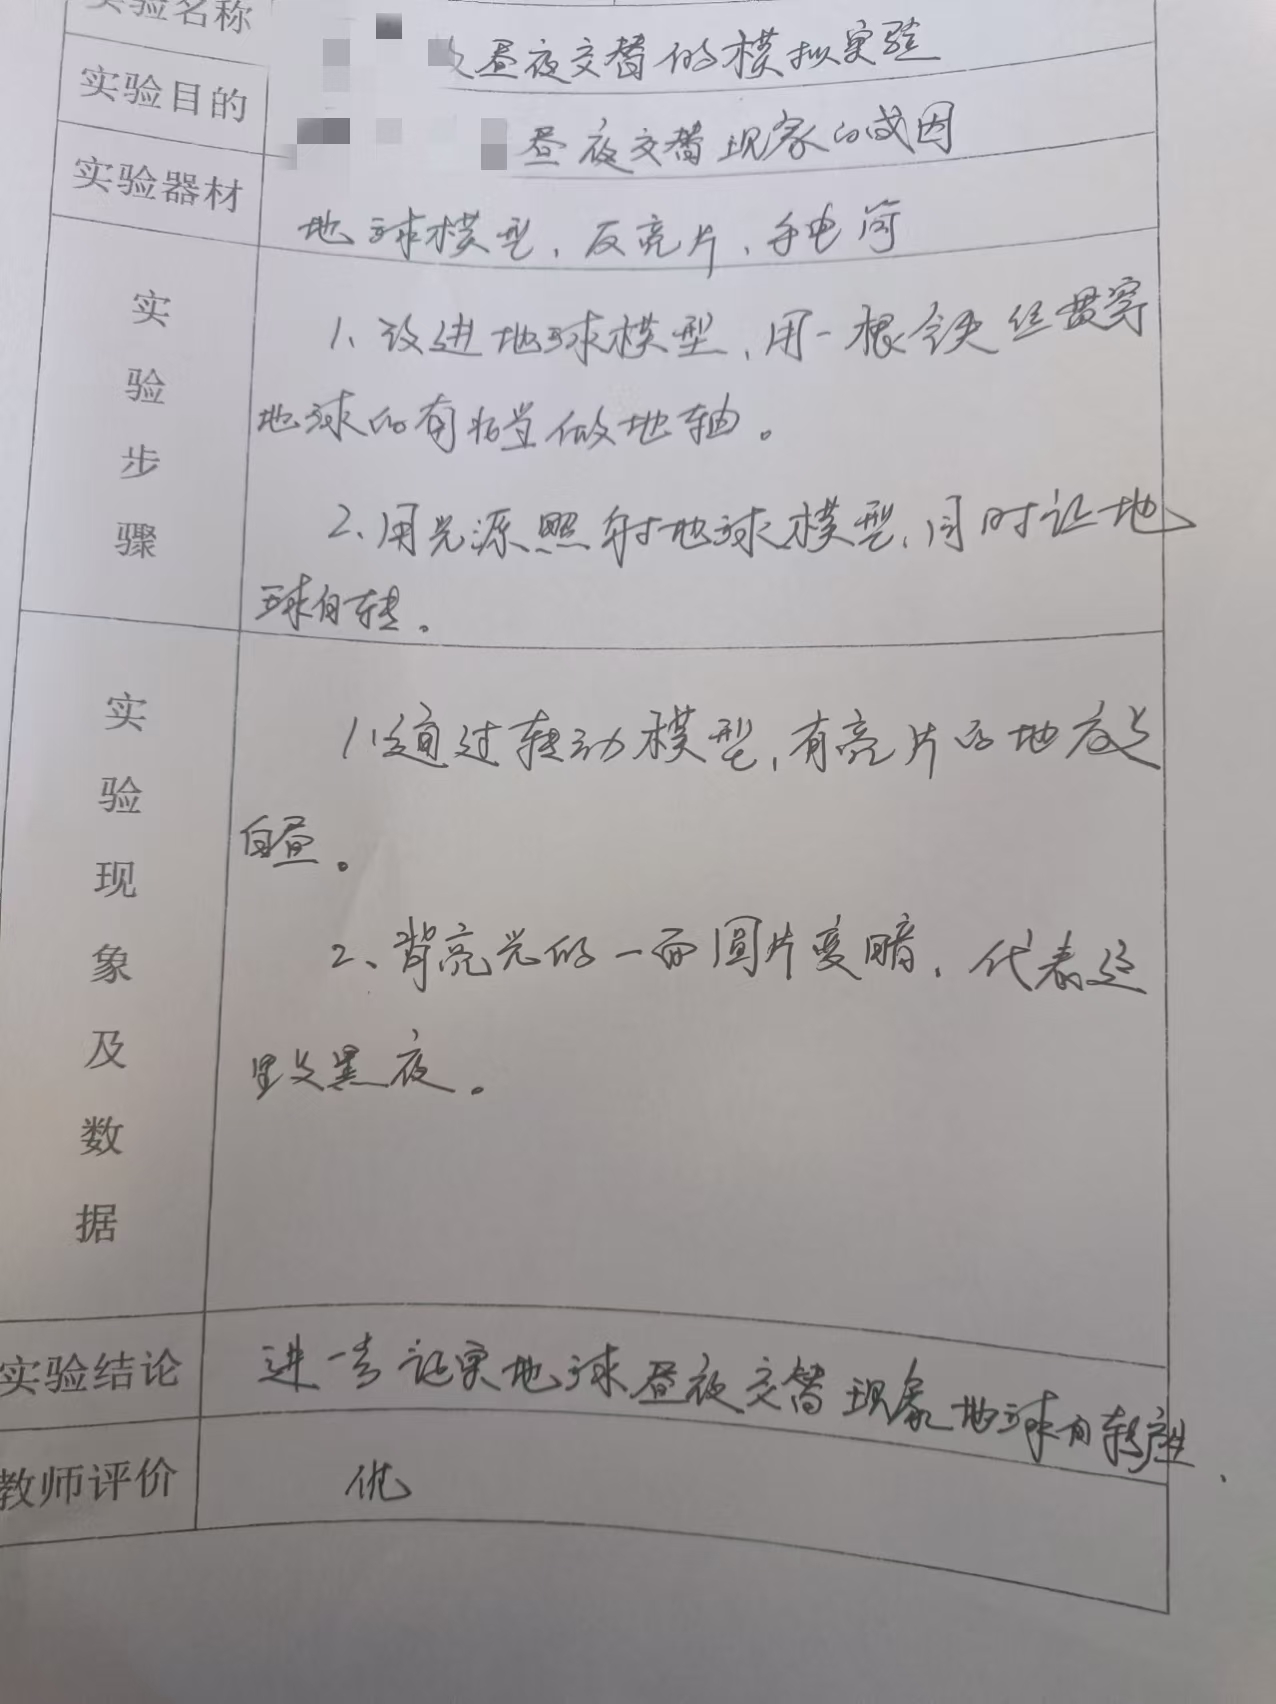 实验名称
昼夜交替的模拟实验
实验目的
昼夜交替现象的成因
实验器材
地球模型、反亮片、手电筒
实验步骤
1、改进地球模型,用一根铁丝贯穿
地球的有位置做地轴。
2、用光源照射地球模型,同时让地
球自转。
实验现象及数据
1、通过转动模型,有亮片的地方是
白昼。
2、背亮光的一面圆片变暗,代表这
里是黑夜。
实验结论
进一步证实地球昼夜交替现象地球自转产生、
教师评价
优